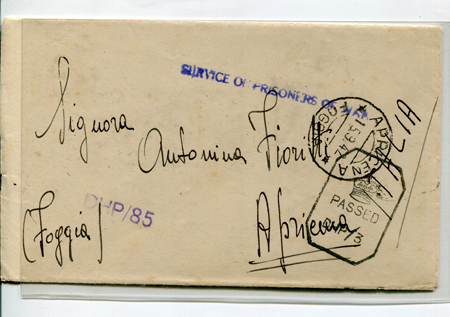 SERVICE OF PRISONERS OF WAR
Signora
Antonina Fiorilli
APRICENA
FOGGIA
PASSED
DHP/85
(Foggia)
Apricena